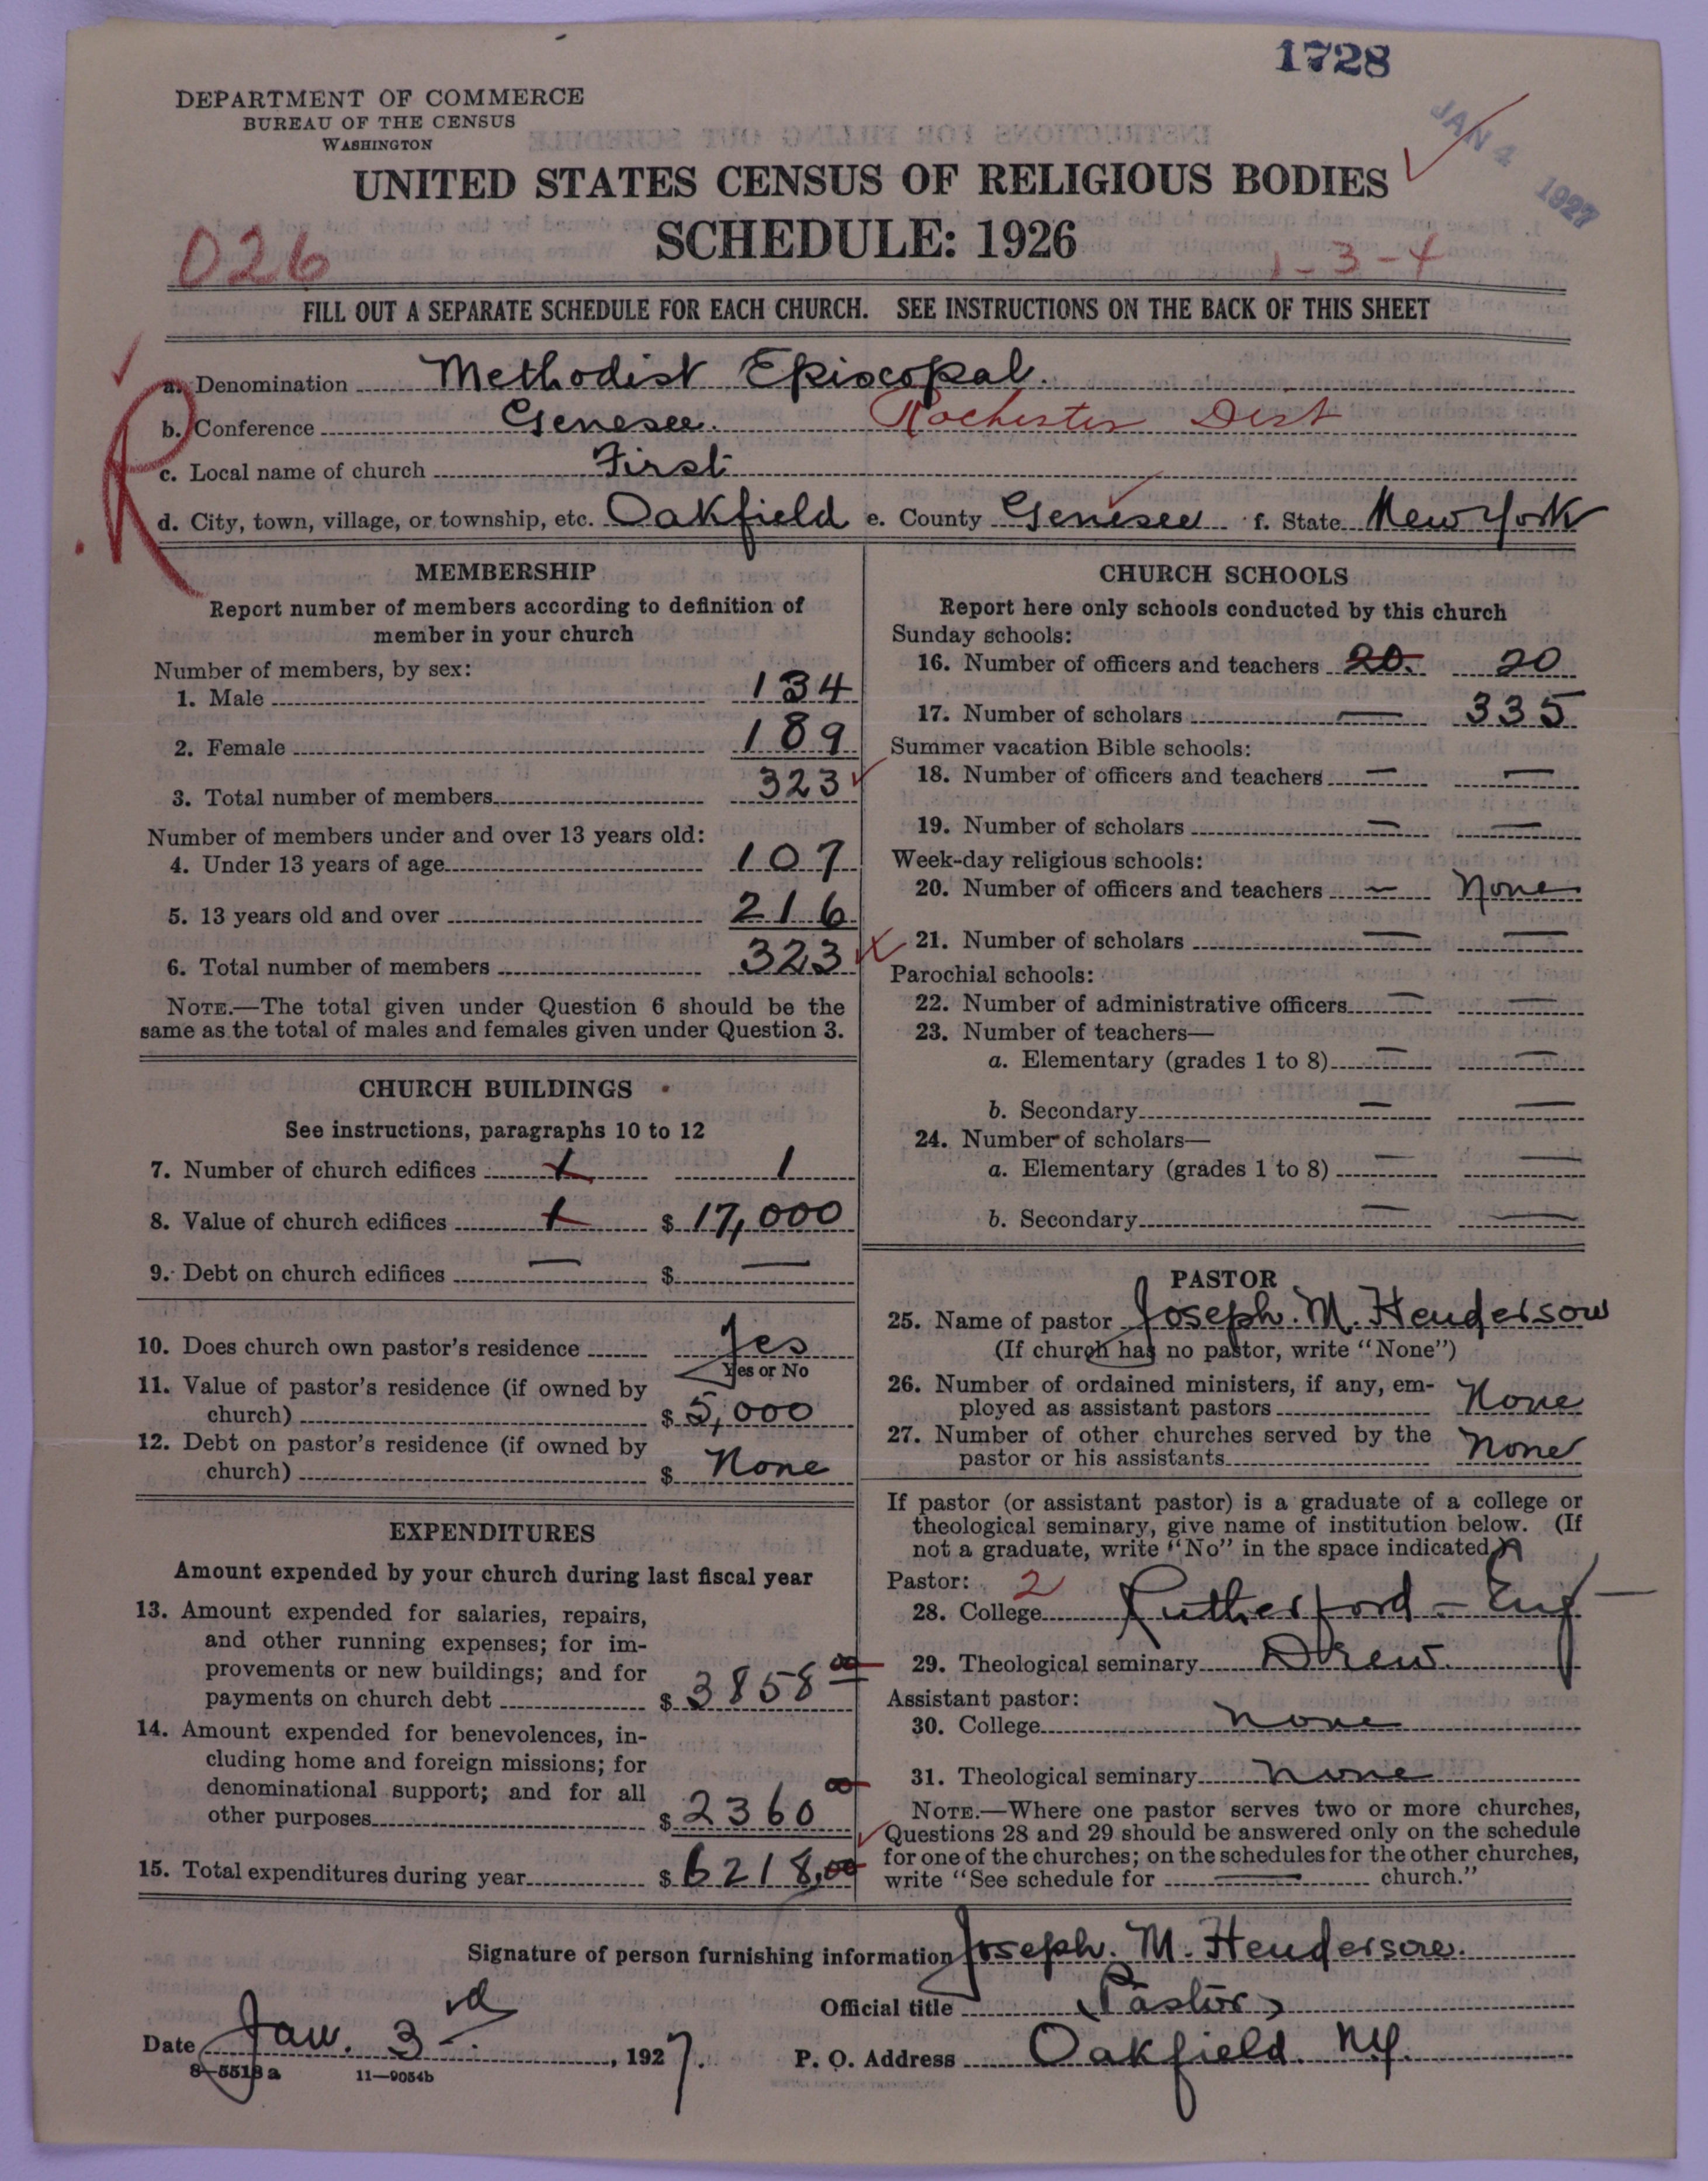 1728
JAN 4 1927
DEPARTMENT OF COMMERCE
BUREAU OF THE CENSUS
WASHINGTON
UNITED STATES CENSUS OF RELIGIOUS BODIES
SCHEDULE: 1926
026
1-3-4
FILL OUT A SEPARATE SCHEDULE FOR EACH CHURCH. SEE INSTRUCTIONS ON THE BACK OF THIS SHEET
a. Denomination Methodist Episcopal.
b. Conference Genesee. Rochester Dist
c. Local name of church First
d. City, town, village, or township, etc. Oakfield e. County Genesee f. State New York
R
MEMBERSHIP
Report number of members according to definition of
member in your church
Number of members, by sex:
1. Male 134
2. Female 189
3. Total number of members 323
Number of members under and over 13 years old:
4. Under 13 years of age 107
5. 13 years old and over 216
6. Total number of members 323
NOTE.—The total given under Question 6 should be the
same as the total of males and females given under Question 3.
CHURCH BUILDINGS
See instructions, paragraphs 10 to 12
7. Number of church edifices 1 1
8. Value of church edifices 1 $ 17,000
9. Debt on church edifices — $ —
10. Does church own pastor's residence Yes
Yes or No
11. Value of pastor's residence (if owned by
church) $ 5,000
12. Debt on pastor's residence (if owned by
church) $ None
EXPENDITURES
Amount expended by your church during last fiscal year
13. Amount expended for salaries, repairs,
and other running expenses; for im-
provements or new buildings; and for
payments on church debt $ 3858 00
14. Amount expended for benevolences, in-
cluding home and foreign missions; for
denominational support; and for all
other purposes $ 2360 00
15. Total expenditures during year $ 6218,00
CHURCH SCHOOLS
Report here only schools conducted by this church
Sunday schools:
16. Number of officers and teachers 20. 20
17. Number of scholars — 335
Summer vacation Bible schools:
18. Number of officers and teachers — —
19. Number of scholars — —
Week-day religious schools:
20. Number of officers and teachers — None
21. Number of scholars — —
Parochial schools:
22. Number of administrative officers — —
23. Number of teachers—
a. Elementary (grades 1 to 8) — —
b. Secondary — —
24. Number of scholars—
a. Elementary (grades 1 to 8) — —
b. Secondary — —
PASTOR
25. Name of pastor Joseph. M. Henderson
(If church has no pastor, write "None")
26. Number of ordained ministers, if any, em-
ployed as assistant pastors None
27. Number of other churches served by the
pastor or his assistants None
If pastor (or assistant pastor) is a graduate of a college or
theological seminary, give name of institution below. (If
not a graduate, write "No" in the space indicated.)
Pastor: 2
28. College Rutherford - Eng
29. Theological seminary Drew.
Assistant pastor:
30. College none
31. Theological seminary none
NOTE.—Where one pastor serves two or more churches,
Questions 28 and 29 should be answered only on the schedule
for one of the churches; on the schedules for the other churches,
write "See schedule for — church."
Signature of person furnishing information Joseph. M. Henderson.
Official title (Pastor)
Date Jan. 3rd, 1927.
P. O. Address Oakfield. N.Y.
8-5518 a 11—9054b